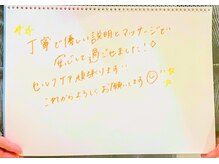 丁寧で優しい説明とマッサージで
安心して過ごせました!!
セルフケア頑張ります…
これからよろしくお願いします